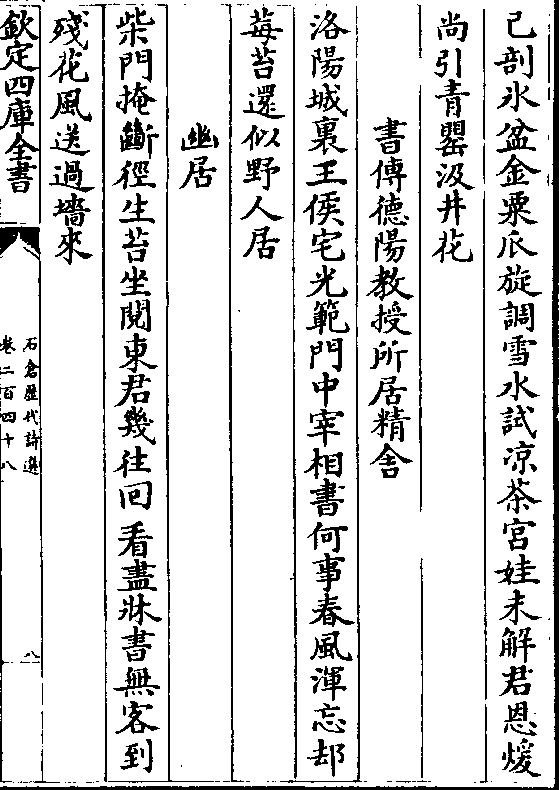 已剖氷盆金粟爪旋調雪水試凉茶宮娃未解君恩煖
尚引青罌汲井花
書傅德陽教授所居精舍
洛陽城裏王侯宅光範門中宰相書何事春風渾忘却
莓苔還似野人居
幽居
柴門掩斷徑生苔坐閱東君幾往回看盡牀書無客到
殘花風送過墻來
欽定四庫全書
石倉歷代詩選
卷二百四十八
八